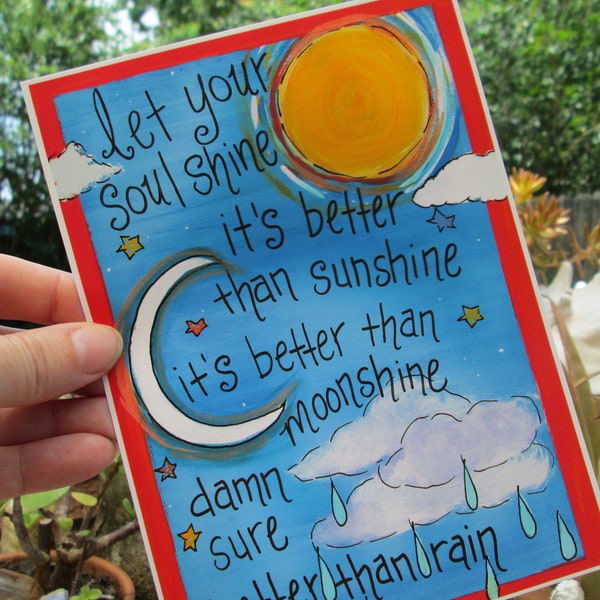 let your
soul shine
it's better
than sunshine
it's better than
moonshine
damn
sure
better than rain